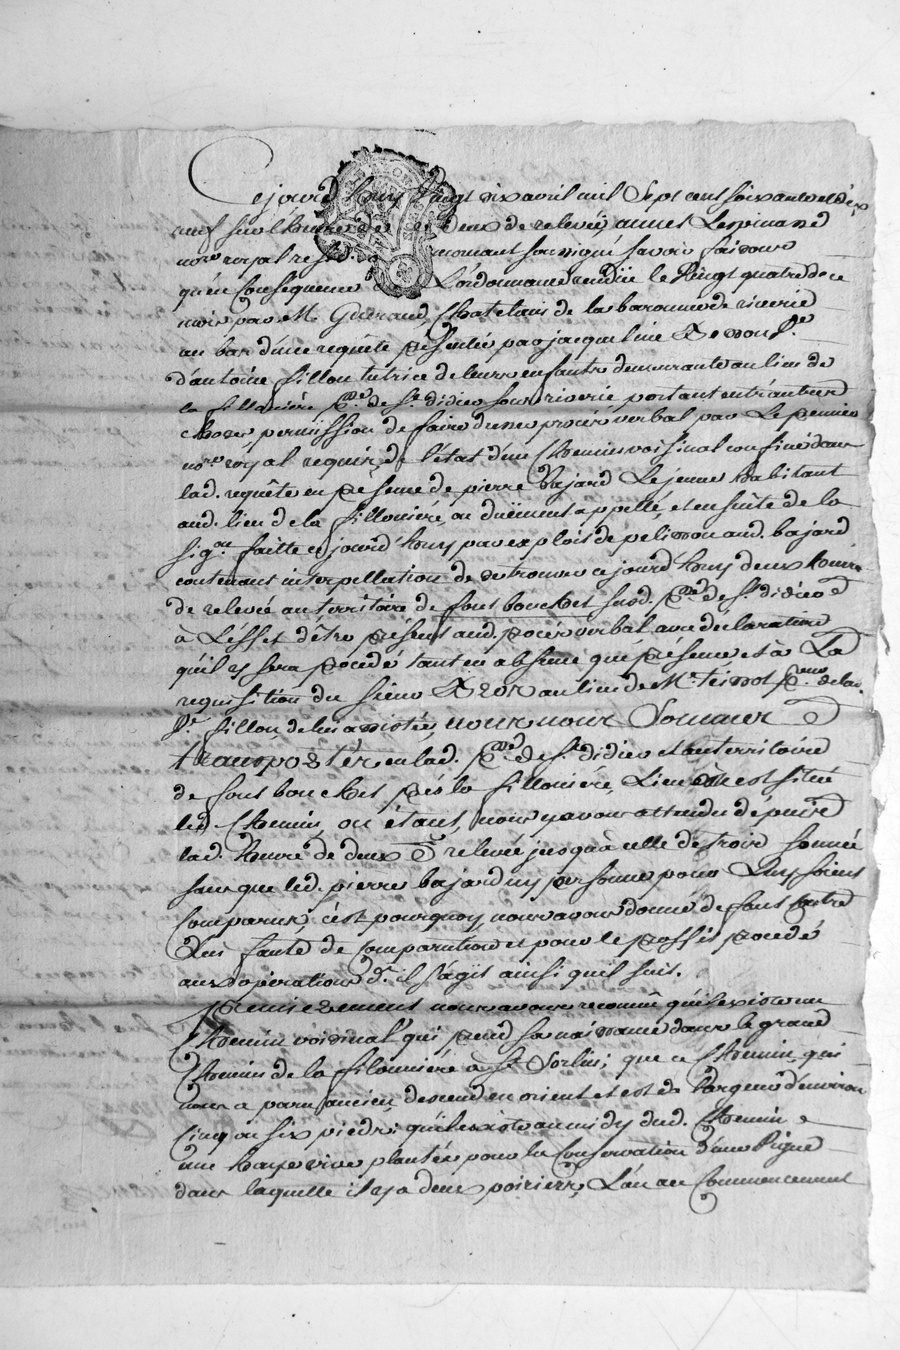 Cejourd'huy Vingt six avril mil Sept cent soixante et dix
neuf sur l'heure de deux de relevée
nore royal rés. soussigné savoir faisons
qu'en Conséquence de L'ordonnance rendüe le Vingt quatre de ce
mois par M. Guerand, Chatelain de la baronnie de riverie
au bas d'une requête présentée par jacqueline ve
d'antoine fillon tutrice de leurs enfants demeurante au lieu de
la fillonière psse de st. didier sous riverie portant entr'autres
choses permission de faire dresser procès verbal par Le premier
nore royal requis, de l'état d'un Chemin voisinal confiné dans
lad. requête en présence de pierre Bajard Le jeune habitant
aud. lieu de la fillonière, ou düement appellé, et ensuite de la
sigon. faitte cejourd'huy par exploit de pelisson aud. bajard
contenant interpellation de se trouver cejourd'huy deux heures
de relevée au territoire de font bouchet susd. psse de st. didier
à L'effet d'être présent aud. procès verbal avec déclaration
qu'il y sera procédé tant en absence que présence et à La
requisition du sieur au lieu de Me. teissot de lad.
ve fillon de lui assistée, nous nous Sommes
transportés en lad. psse de st. didier et au territoire
de font bouchet près la fillonière, Lieu où est situé
led. Chemin, où étant, nous y avons attendu depuis
lad. heure de deux de relevée jusqu'à celle de trois sonnée
sans que led. pierre bajard ny personne pour Luy soient
Comparus, c'est pourquoy nous avons donné defaut contre
Lui faute de Comparution et pour le proffit procédé
aux opérations dt. il s'agit ainsi qu'il suit.
Premierement nous avons reconnu qu'il existe un
Chemin voisinal qui prend sa naissance dans le grand
Chemin de la fillonnière à st. Sorlin; que ce Chemin, qui
nous a paru ancien, descend en orient et est de Largeur d'environ
Cinq ou six pieds; qu'il existe au midy dud. Chemin
une haye vive plantée pour la Conservation d'une Vigne
dans laquelle il y a deux poiriers, L'un au Commencement